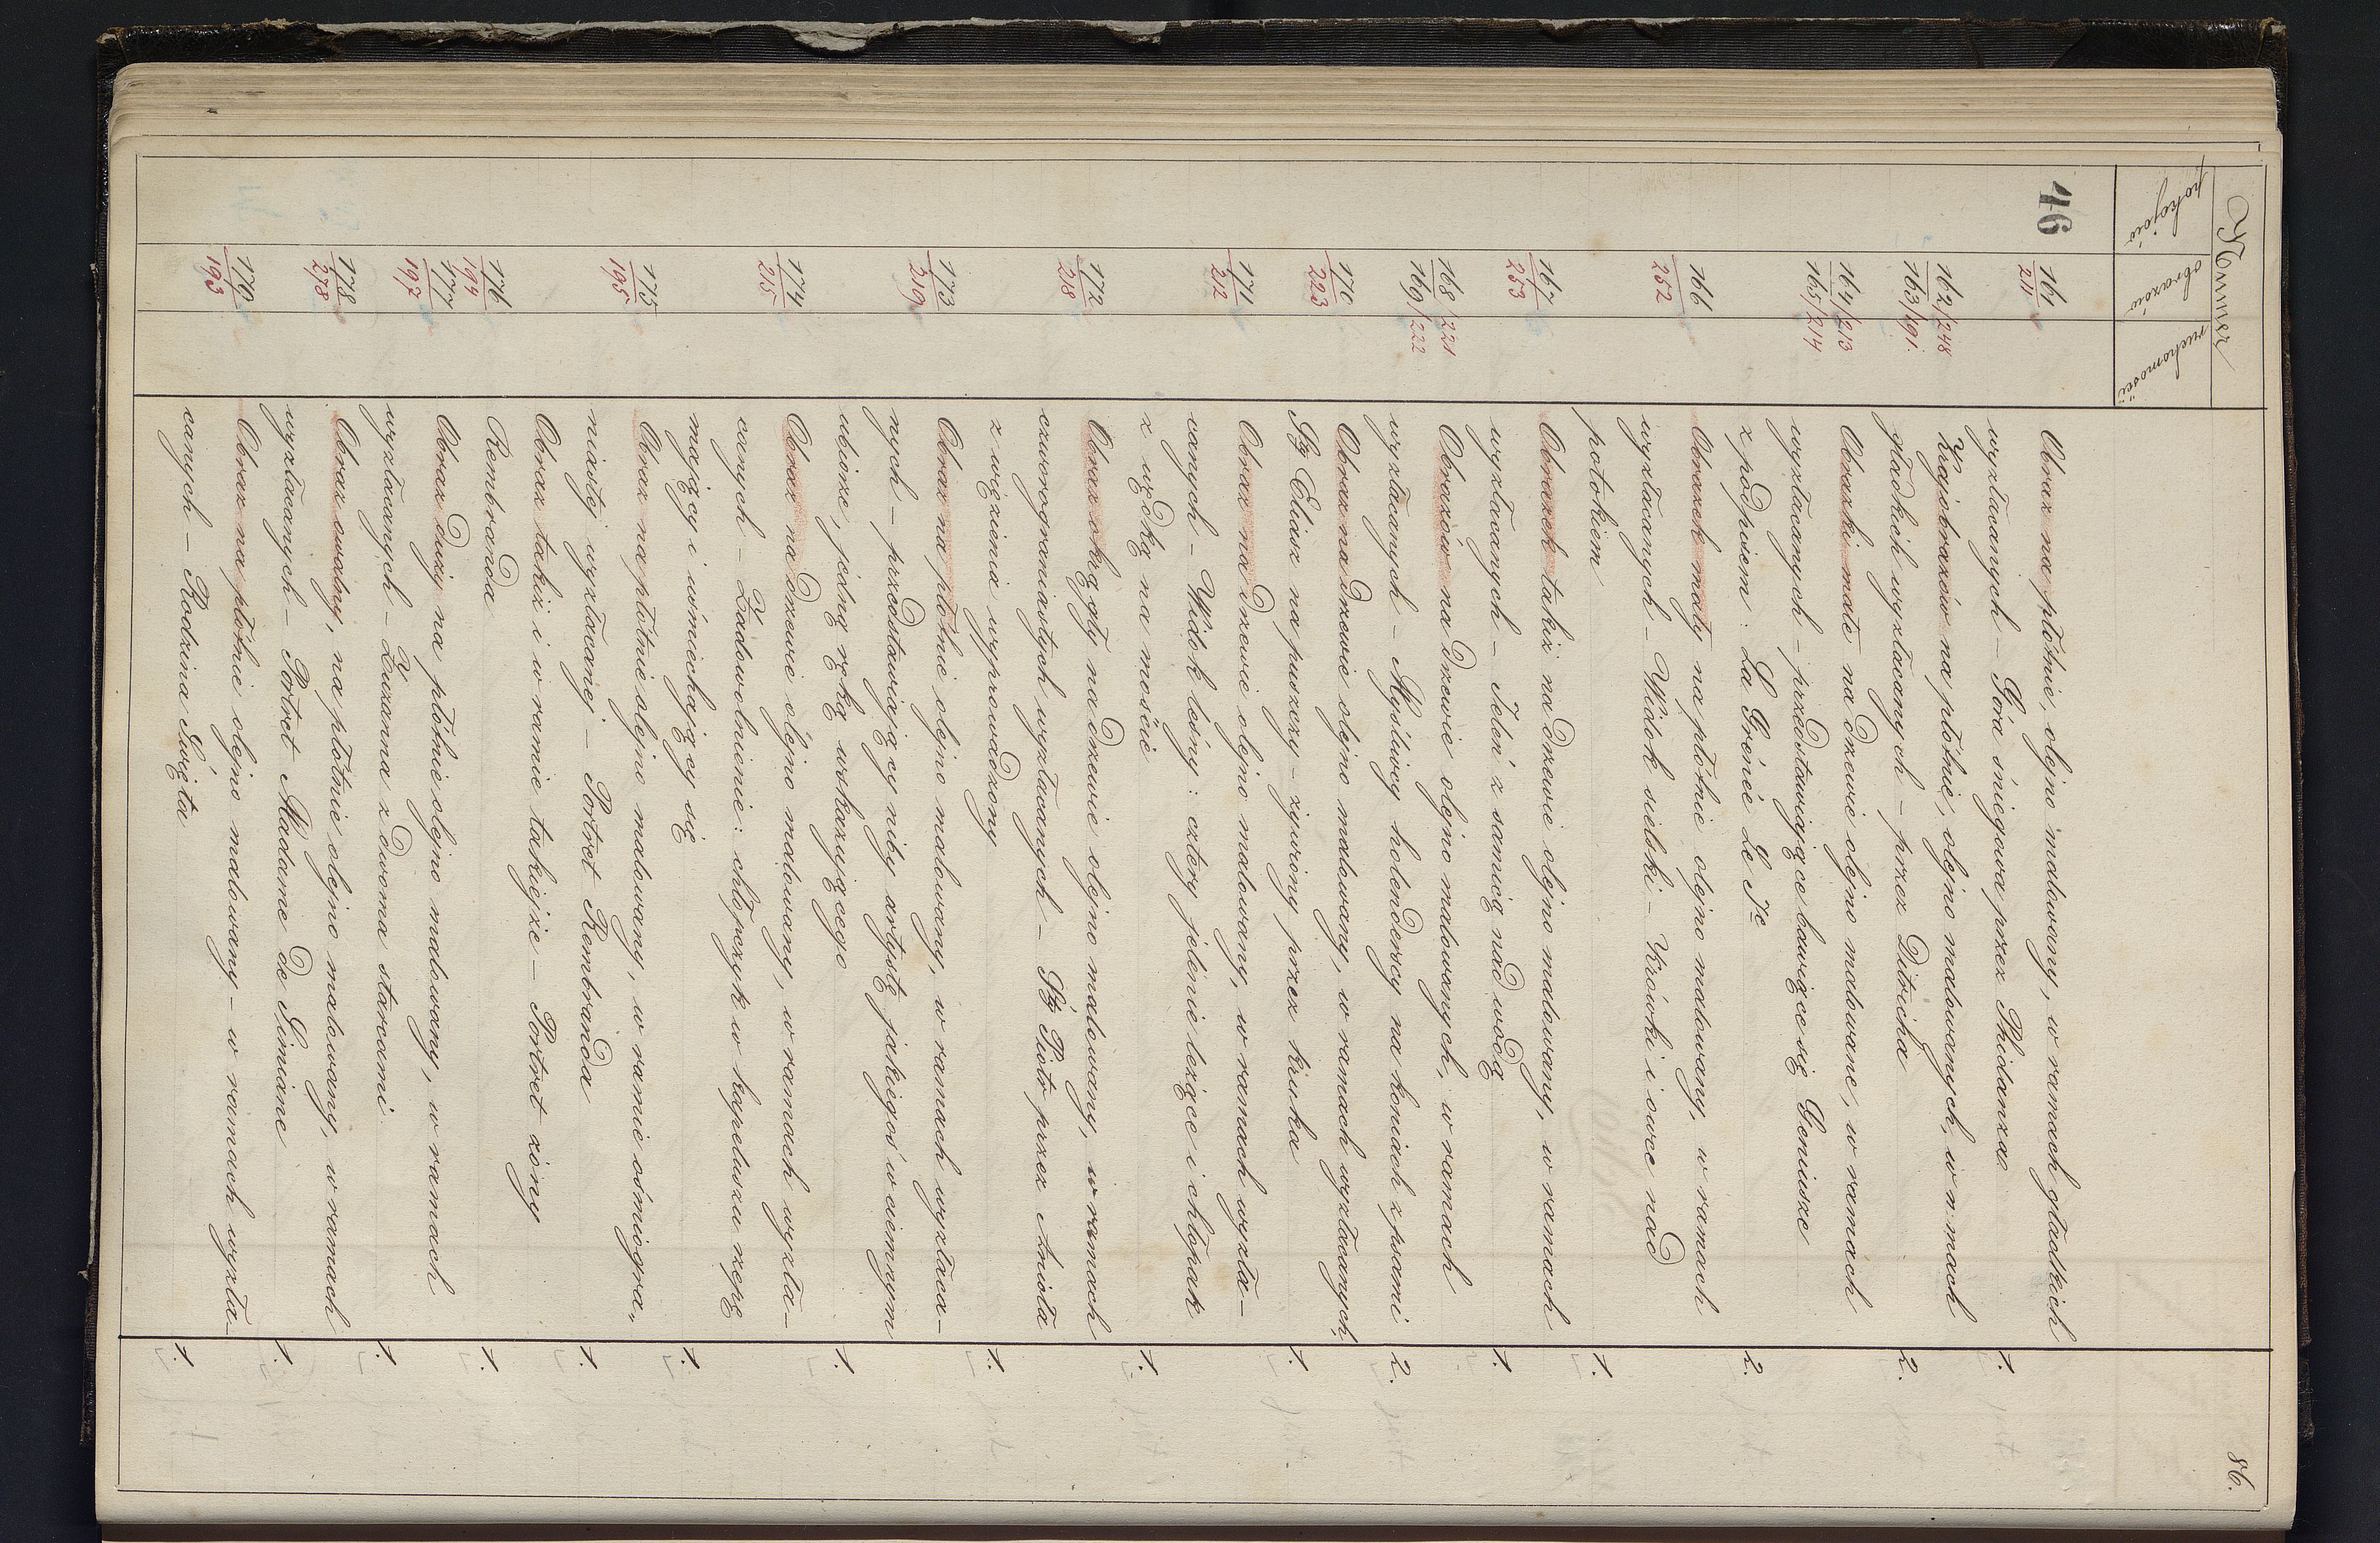 86.
Numer
pokojów obrazów ruchomości
46
161/211 Obraz na płótnie, olejno malowany, w ramach gładkich
wyzłacanych – Góra śniegowa przez Phidanza 1.
162/248 Krajobrazów na płótnie, olejno malowanych, w ramach
163/191. gładkich wyzłacanych – przez Ditricha 2.
164/213 Obrazki małe na drzewie olejno malowane, w ramach
165/214 wyzłacanych – przedstawiające bawiące się Geniusze
z podpisem: La Grénée Le Je 2.
166/252 Obrazek mały na płótnie olejno malowany, w ramach
wyzłacanych – Widok sielski – Krówki i owce nad
potokiem 1.
167/253 Obrazek takiż na drzewie olejno malowany, w ramach
wyzłacanych – Jeleń z samicą nad wodą 1.
168/221 Obrazów na drzewie olejno malowanych, w ramach
169/222 wyzłacanych – Myśliwcy holenderscy na koniach z psami 2.
170/223 Obraz na drzewie olejno malowany, w ramach wyzłacanych,
Sty Eliasz na puszczy – żywiony przez kruka 1.
171/212 Obraz na drzewie olejno malowany, w ramach wyzła–
canych – Widok leśny: cztery jelenie leżące i chłopak
z wędką na moście 1.
172/218 Obraz okrągły na drzewie olejno malowany, w ramach
czworograniastych wyzłacanych – Sty Piotr przez Anioła
z więzienia wyprowadzony 1.
173/219 Obraz na płótnie olejno malowany, w ramach wyzłaca–
nych – przedstawiający niby artystę jakiegoś w ciemnym
ubiorze, jedną ręką wskazującego 1.
174/215 Obraz na drzewie olejno malowany, w ramach wyzła–
canych – Zadowolnienie: chłopczyk w kapeluszu rzepę
mający i uśmiechający się 1.
175/195 Obraz na płótnie olejno malowany, w ramie ośmiogra„
niastej wyzłacanej – Portret Rembranda 1.
176/194 Obraz takiż i w ramie takiejże – Portret żony
Rembranda 1.
177/197 Obraz duży na płótnie olejno malowany, w ramach
wyzłacanych – Zuzanna z dwoma starcami 1.
178/278 Obraz owalny, na płótnie olejno malowany, w ramach
wyzłacanych – Portret Madame de Simiane 1.
179/193 Obraz na płótnie olejno malowany – w ramach wyzła–
canych – Rodzina Święta 1.